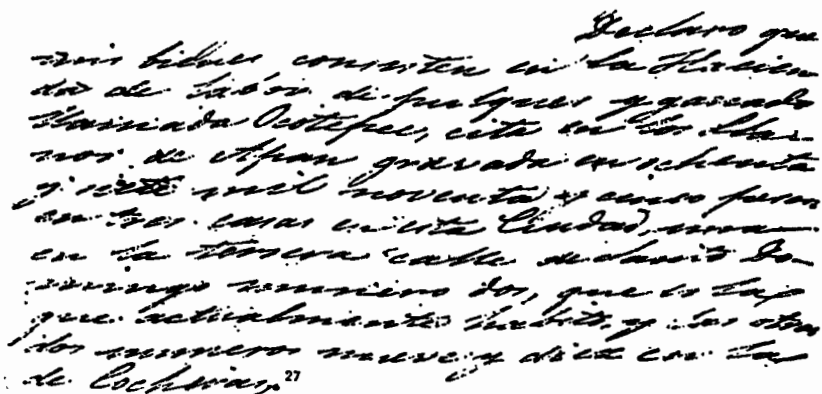 Declaro que
mis bienes consisten en la Hacien
da de labor de pulques y ganado
llamada Ocotepec, cita en los Lla-
nos de Apan gravada en ochenta
y siete mil noventa y cinco pesos
en tres casas en esta Ciudad, una
en la tercera calle de Santo Do-
mingo numero dos, que es la
que actualmente habito, y las otras
dos numeros nueve y diez en la
de Cocheras.27